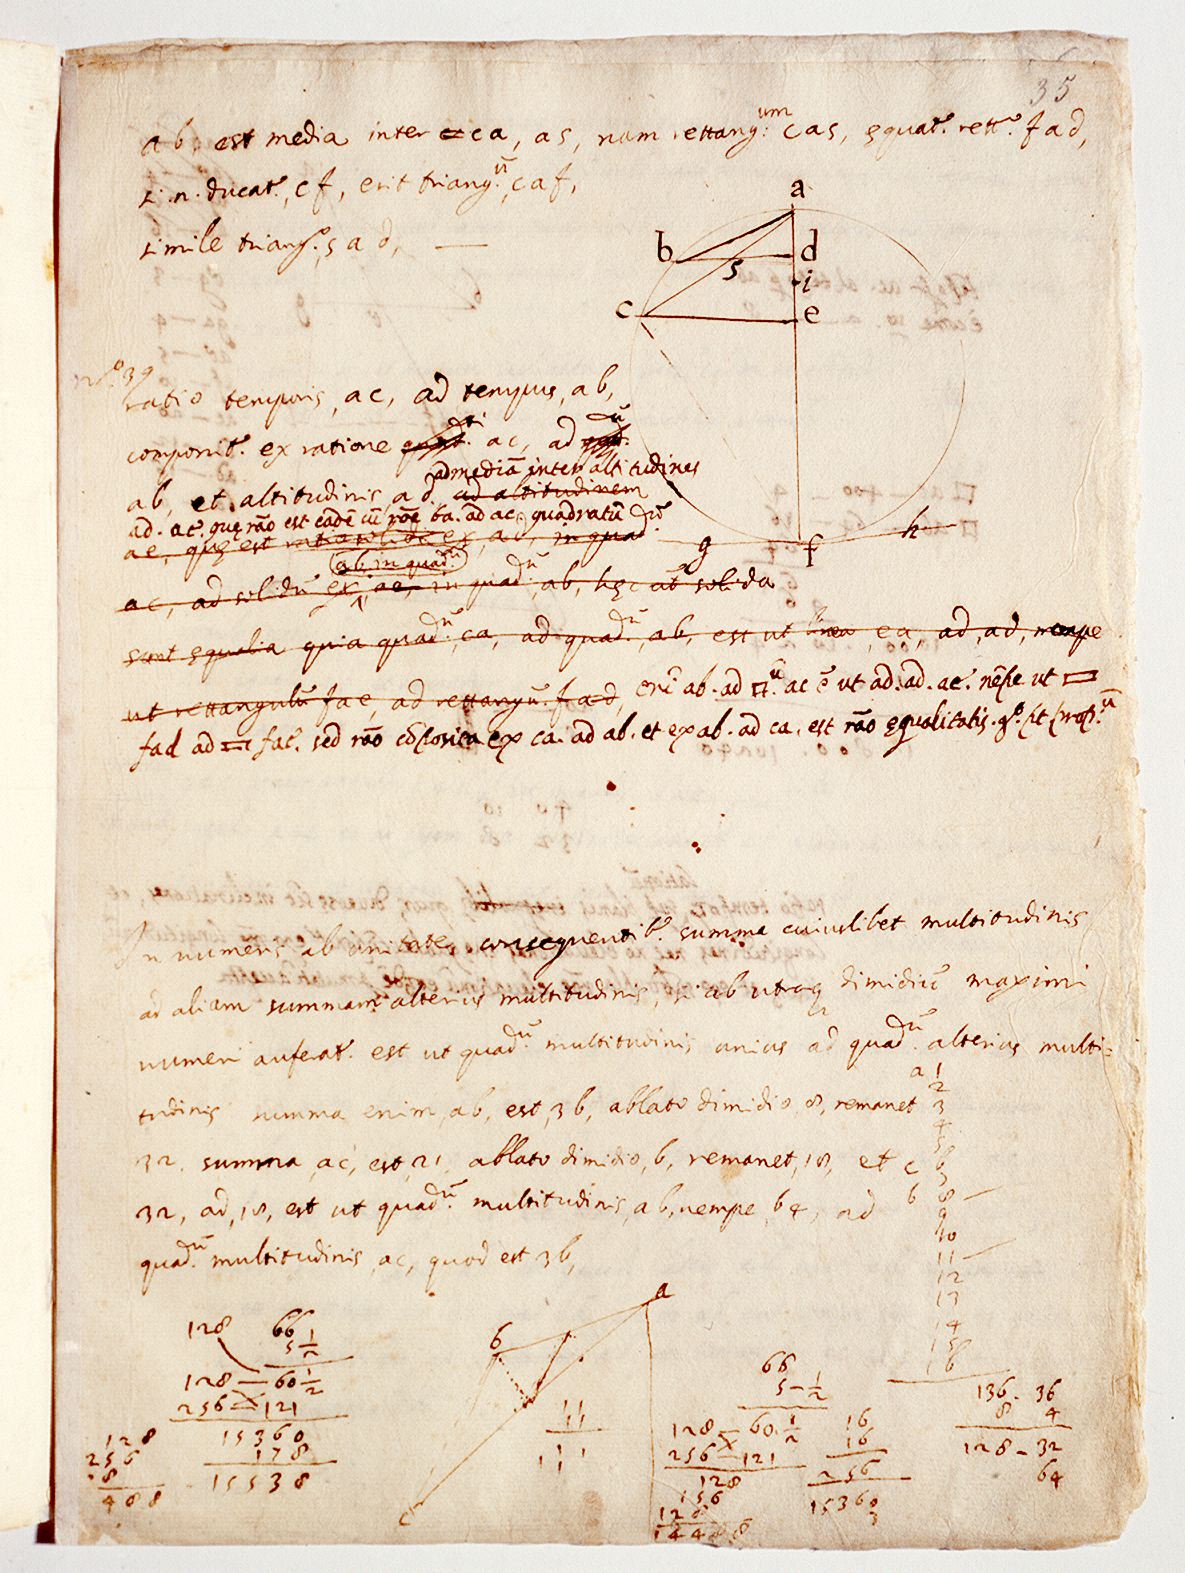 35
ab, est media inter ca, as, nam rettang.um cas, ęquat.r rett.o fad,
si n. ducat.r, cf, erit triang.ũ, caf,
simile triang.o, sad,
a
b
d
s
i
c
e
g
f
h
39
ratio temporis, ac, ad tempus, ab,
componit.r ex ratione ac, ad
ab, et altitudinis, ad, ad mediã inter altitudines
ad altitudinem
ad. ae. quę rão est eadẽ cũ rõe ba. ad ac. quadratũ
ae, quę est ratio solidi ex, ac, in quad.
ab, in quad.ũ
ac, ad solidũ ex, ae, in quad.ũ, ab, hęc aut solida
sunt ęqualia quia quad.ũ, ca, ad quad.ũ, ab, est ut linea, ea, ad, ad, nempe
ut rettangulũ fae, ad rettang.ũ fad,
eni ab. ad □.ũ ac ẽ ut ad. ad. ae. nẽpe ut ▭
fad ad ▭ fae. sed rão cõposita ex ca. ad ab. et ex ab. ad ca. est rão ęqualitatis. g.o pt prop.ũ
In numeris ab unitate consequentib.s summa cuiuslibet multitudinis
ad aliam summam alterius multitudinis, si ab utraq dimidiũ maximi
numeri auferat.r est ut quad.ũ multitudinis unius ad quad.ũ alterius multi=
tudinis summa enim, ab, est, 36, ablato dimidio, 8, remanet
32. summa, ac, est, 21, ablato dimidio, 6, remanet, 18, et
32, ad, 18, est ut quad.ũ multitudinis, ab, nempe, 64, ad
quad.ũ multitudinis, ac, quod est 36,
a 1
2
3
4
5
c 6
7
b 8
9
10
11
12
13
14
15
16
128 66
5 1/2
128 — 60 1/2
256 — 121
15360
178
15538
128
256
8
488
a
b
c
11
11
111
66
5 — 1/2
128 — 60 1/2
256 — 121
128
156
128
14488
16
16
256
15360
3
136 . 36
8 4
128 — 32
64